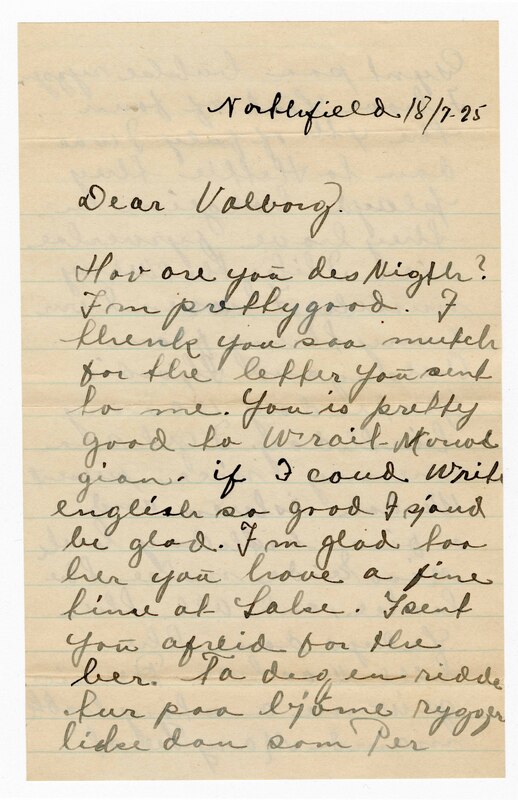 Northfield 18/7-25
Dear Valborg.
Hov are you des Nigth?
I'm pretty good. I
thenk you soo mutch
for the letter you sent
to me. You is pretty
good to Wrait-Norwe
gian. if I coud Write
english so good I sjoud
be glad. I'm glad too
her you have a fine
time at Lake. Isent
you afreid for the
ber. Ta deg en ridde
tur paa bjørne ryggen
likse dan som Per